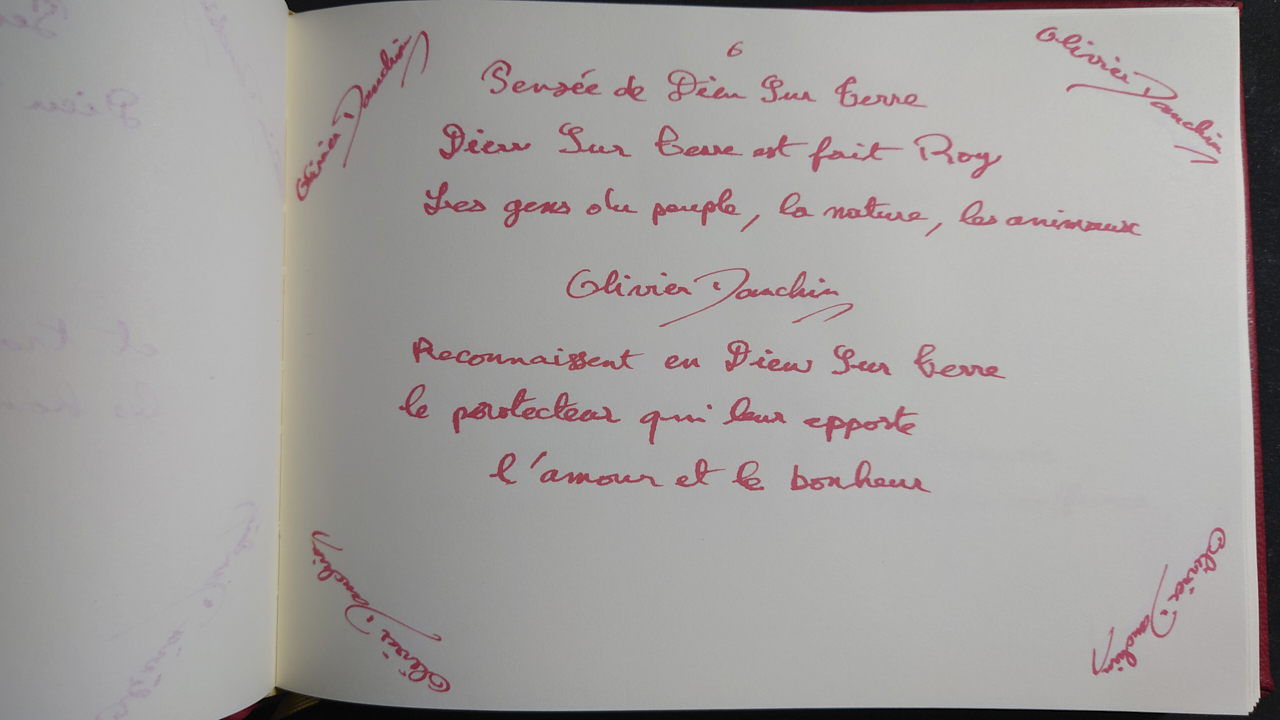 6
Pensée de Dieu Sur terre
Dieu Sur terre est fait Roy
Les gens du peuple, la nature, les animaux
Olivier Dauchin
Reconnaissent en Dieu Sur terre
le protecteur qui leur apporte
l'amour et le bonheur
Olivier Dauchin
Olivier Dauchin
Olivier Dauchin
Olivier Dauchin